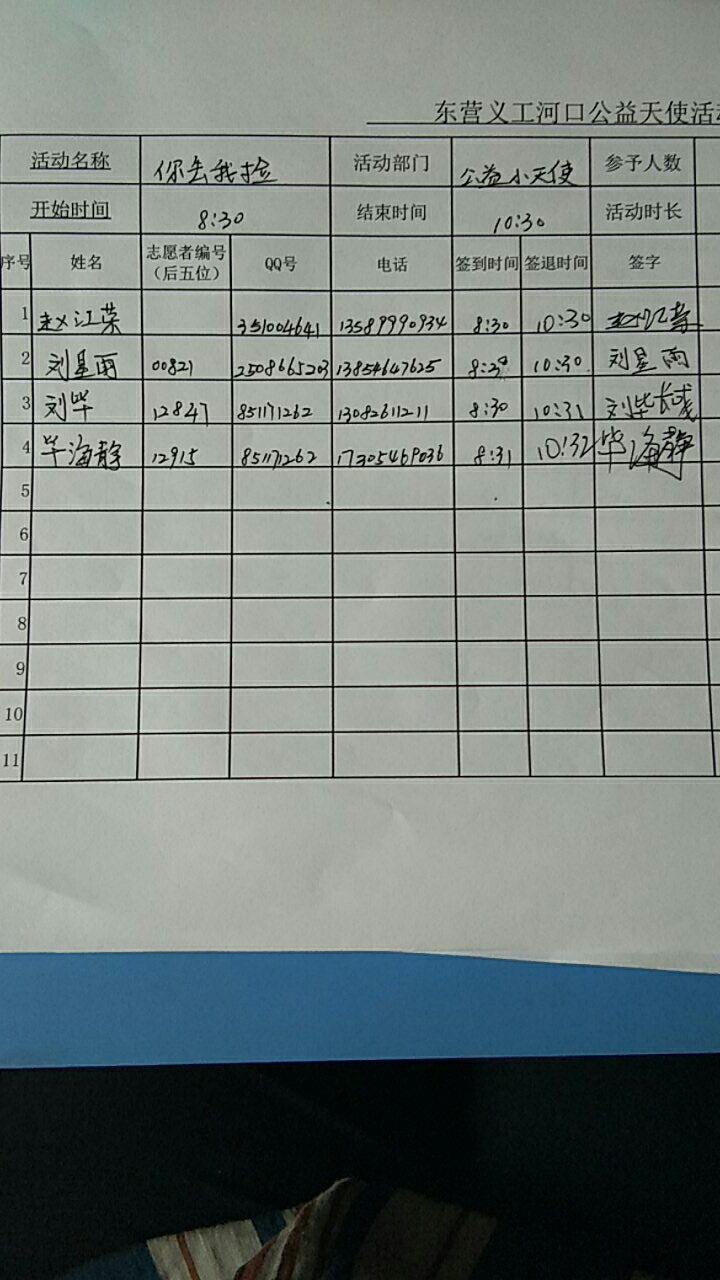 东营义工河口公益天使活
活动名称 你丢我捡 活动部门 公益小天使 参予人数
开始时间 8:30 结束时间 10:30 活动时长
序号 姓名 志愿者编号（后五位） QQ号 电话 签到时间 签退时间 签字
1 赵江荣 351004641 13589990934 8:30 10:30 赵江荣
2 刘星雨 00821 2508665203 13854647625 8:30 10:30 刘星雨
3 刘毕 12847 851171262 13082611211 8:30 10:31 刘毕
4 毕海静 12915 851171262 17305469036 8:31 10:32 毕海静
5
6
7
8
9
10
11